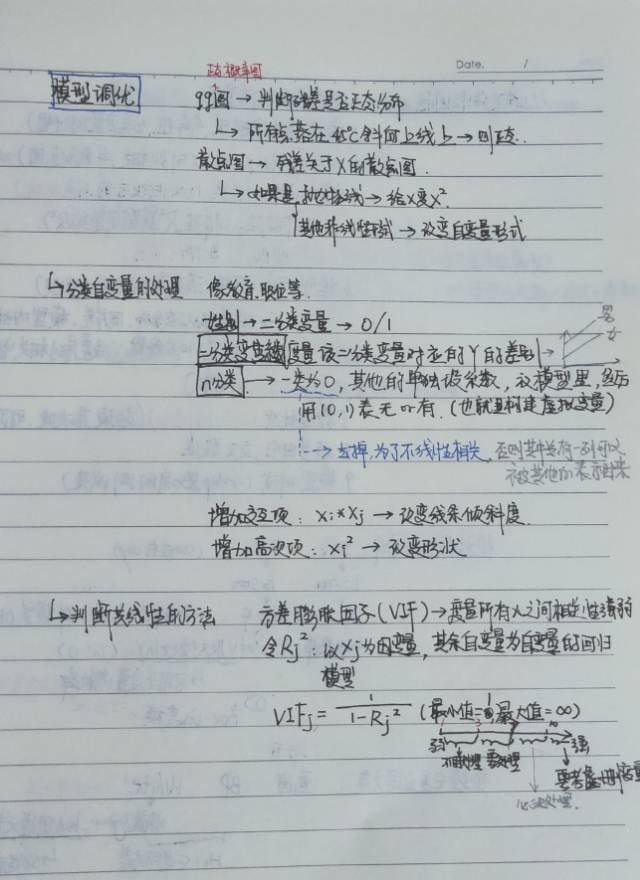 Date. /
正态概率图
模型调优
qq图 → 判断残差是否正态分布
↳ 所有点落在45℃斜向上线上 → 则正态.
散点图 → 残差关于X的散点图.
↳ 如果是抛物线 → 给X变X².
其他非线性形式 → 改变自变量形式
↳ 分类自变量的处理 像教育.职业等.
性别 → 二分类变量 → 0/1
男
女
二分类变 度量该二分类变量对应的Y的差别 →
n分类 → 一类为0, 其他的单独设系数, 议模型里, 然后
用(0,1)表无or有. (也就是构建虚拟变量)
→ 去掉, 为了不线性相关, 否则其中关有一列可以
被其他的表示出来
增加交互项: Xi*Xj → 改变线条倾斜度.
增加高次项: Xi² → 改变形状.
↳ 判断共线性的方法 方差膨胀因子(VIF) → 度量所有X之间相关性强弱
令Rj²: 以Xj为因变量, 其余自变量为自变量的回归
模型
VIFj = 1/(1-Rj²) (最小值=1, 最大值=∞)
弱 强
不用处理 要处理
必须处理.